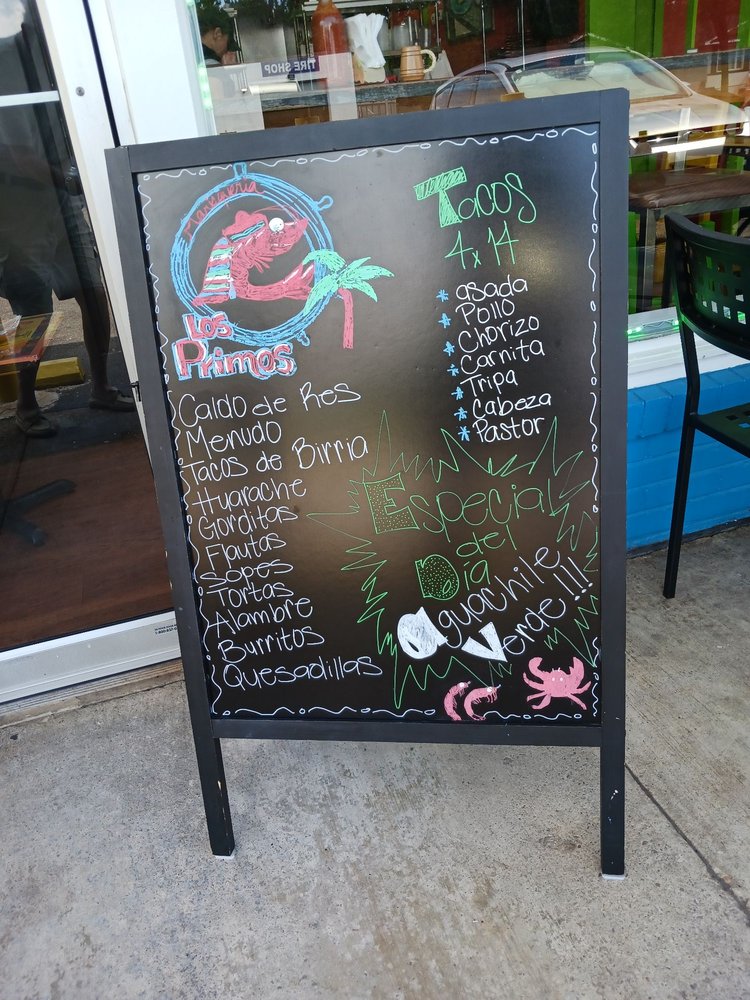 TIRE SHOP
Los
Primos
Caldo de Res
Menudo
Tacos de Birria
Huarache
Gorditas
Flautas
Sopes
Tortas
Alambre
Burritos
Quesadillas
Tacos
4x14
* asada
* Pollo
* Chorizo
* Carnita
* Tripa
* Cabeza
* Pastor
Especial
del
Día
aguachile
Verde!!!